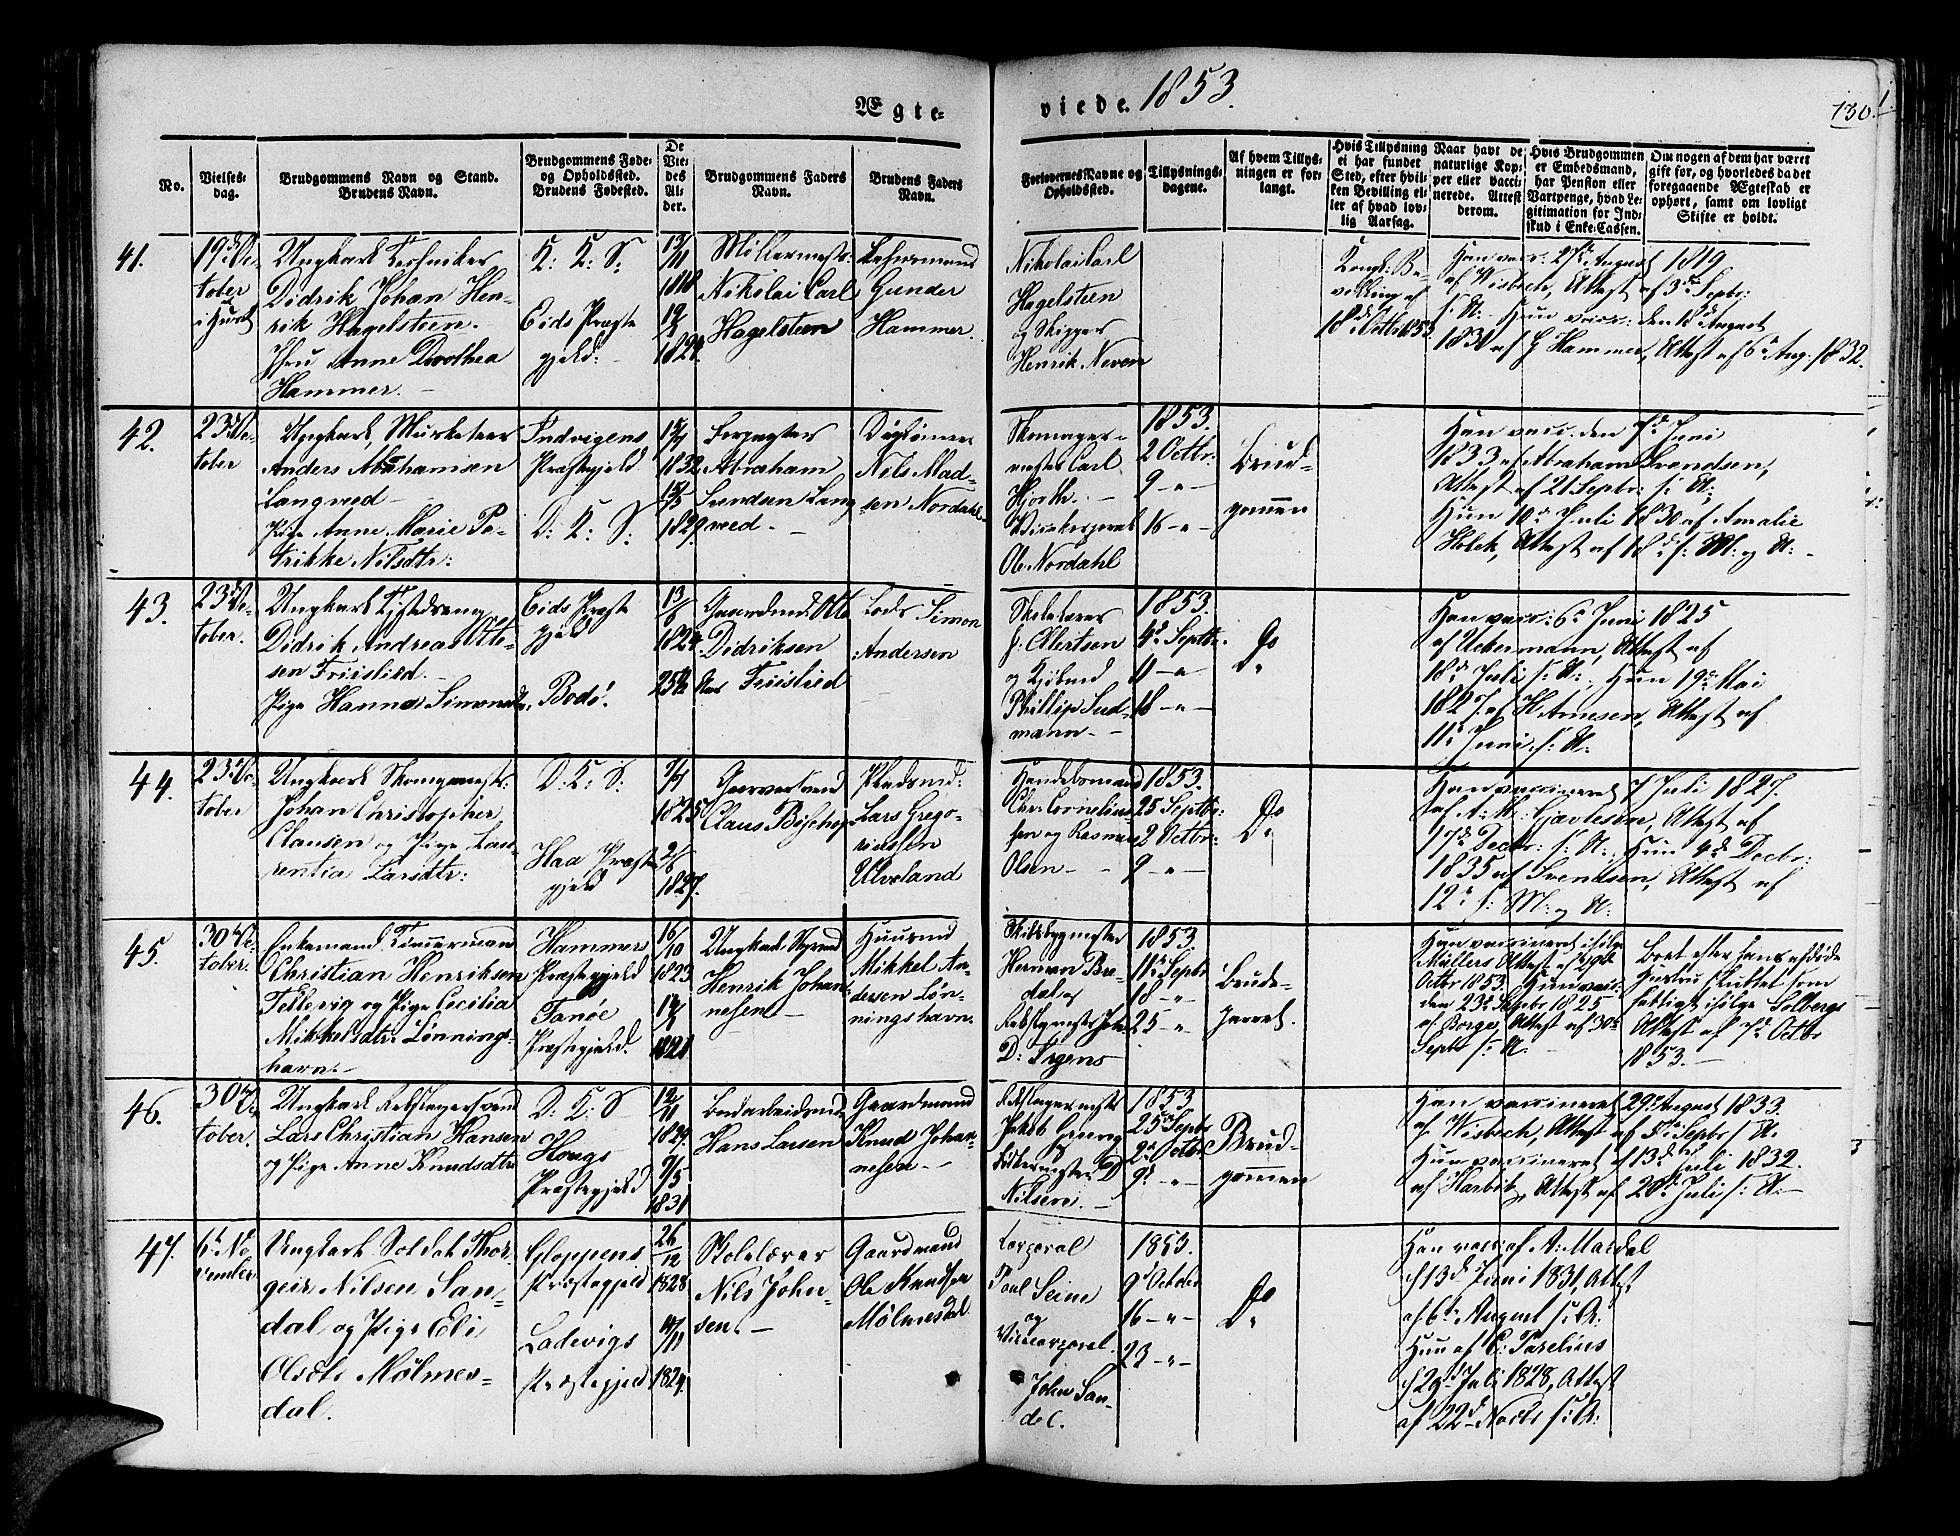 Ægte-
viede. 1853.
130.
No.
Vielses-
dag.
Brudgommens Navn og Stand.
Brudens Navn.
Brudgommens Føde-
og Opholdssted.
Brudens Fødested.
De
Vie-
des
Al-
der.
Brudgommens Faders
Navn.
Brudens Faders
Navn.
Forlovernes Navne og
Opholdssted.
Tillysnings-
dagene.
Af hvem Tillys-
ningen er for-
langt.
Hvis Tillysning
ei har fundet
Sted, efter hvil-
ken Bevilling el-
ler af hvad lov-
lig Aarsag.
Naar havt de
naturlige Kop-
per eller vacci-
nerede. Attest
derom.
Hvis Brudgommen
er Embedsmand,
har Pension eller
Vartpenge, hvad Le-
gitimation for Ind-
skud i Enke-Cassen.
Om nogen af dem har været
gift før, og hvorledes da det
foregaaende Ægteskab er
ophørt, samt om lovligt
Skifte er holdt.
41.
19de Oc-
tober
i Huset
Ungkarl
Didrik Johan Hen-
rik Hagelsteen.
Jfru Anne Dorothea
Hammer.
D: K: S:
Eids Præste
gjeld:
1818
19
1824
Møllermester
Nikolai Carl
Hagelsteen
Gunder
Hammer.
Nikolai Carl
Hagelsteen
og Skipper
Henrik Neven
Kongl: Be-
villing af
18de Octbr 1853
Han vacc. 27de August 1819
af Wisbech, Attest af 3de Septbr:
s: A: Hun vacc: den 18de August
1831 af G Hammer, Attest af 6te Aug. 1832.
42.
23de Oc-
tober
Ungkarl, Musketeer
Anders Abrahamsen
Langved
Pige Anne Marie Pe-
trikke Nilsdtr:
Indvigens
Præstegjeld
D: K: S:
1832
1829
Abraham
Svendsen Lang
wed
Nils Mad-
sen Nordahl
Skomager-
mester Carl
Hjorth.
Ole Nordahl
1853.
2 Octbr:
9 - " -
16 - " -
Brud-
gommen
Han vacc. den 7de Juni
1833 af Abraham Svendsen,
Attest af 21 Septbr: s: A:
Hun 10de Juli 1830 af Amalie
Holck, Attest af 18de s: M: og A:
43.
23de Oc-
tober.
Ungkarl
Didrik Andreas Otte-
sen Friislied.
Pige Hanna Simonsdtr.
Eids Præste
gjeld
Bodö.
13
1824.
Gaardmd: Otte
Didriksen
Friislied
Lods Simon
Andersen
Skolelærer
Phillip Sud-
mann
1853.
4de Septbr.
11 - "
18 - "
Do
Han vacc: 6te Juni 1825
af Uckermann, Attest af
18de Juli s: A:, Hun 19de Mai
1827. af H Arnesen, Attest af
11te Juni s: A:
44.
23de Oc-
tober
Ungkarl Skomagermestr:
Johan Christopher
Clausen og Pige Lau-
rentia Larsdtr:
D: K: S:
Haa Præste
gjeld
1825
1827.
Garversvend
Claus Bischop
Pladsmd:
Lars Grego-
riussen
Ulveland
Handelsmand
Chr: Cornelius
sen og Rasmus
Olsen
1853.
25 Septbr:
2 Octbr:
9 - "
Do
Han vaccineret 7 Juli 1827.
17de Decbr: s: A:, Hun 4de Decbr:
1835 af Svendsen, Attest af
12te s: M: og A:
45.
30te Oc-
tober.
Enkemand Tømmermand
Christian Henriksen
Tellevig og Pige Cecilia
Mikkelsdtr: Lønnings-
havn.
Hammers
Præstegjeld
Fanöe
Præstegjeld.
16
10
1823
1821
Henrik Johan-
nesen
Huusmd
Mikkel An-
dersen Løn-
ningshavn
Skibsbygmester
Herman Bre-
dal og
D: Irgens
1853.
11te Septbr
18 - "
25 - "
Brude-
parret.
Han vaccineret ifølge
Müllers Attest af
Octbr 1853. Hun vacc:
den 23de Septbr 1825
af Borge, Attest af 30te
Septbr s: A:
Bort efter hans afdøde
Hustru skiftet som
Attest af 7de Octbr
1853.
46.
30te Oc-
tober.
Ungkarl Rebslagersvend
Lars Christian Hansen
og Pige Anne Knudsdtr
D: K: S
Hougs
Præstegjeld
12
11
1829.
9/5
1831
Bodarbeidsmd
Hans Larsen
Gaardmand
Knud Johan-
nesen
Rebslagermester
Jakob
D
Nilsen.
1853
25de Septbr
2de Octbr
9de - "
Brud-
gommen
Han vaccineret 29de August 1833.
af Wisbech, Attest af 5te Septbr s: A.
Hun vaccineret af 13de Juli 1832.
af Harbitz, Attest af 20de Juli s: A:
47.
6te No-
vember
Ungkarl Soldat Thor-
geir Nilsen San-
dal og Pige Eli
Olsdtr Mølmes-
dal.
Gloppens
Præstegjeld
Ladevigs
Præstegjeld
26
12
1828
11
1824.
Skolelærer
Nils John-
sen.
Gaardmand
Ole Knudsen
Mølmesdal
Corporal
Poul Seim
og
Vicecorporal
John San-
dal.
1853.
9de October
16 - " -
23 - " -
Do
Han vacc: af A: Mardal
d 13de Juni 1831, Attest
af 6te August s: A:
Hun af C: Parelius
d 29de Juli 1828, Attest
af 22de Novbr s: A: